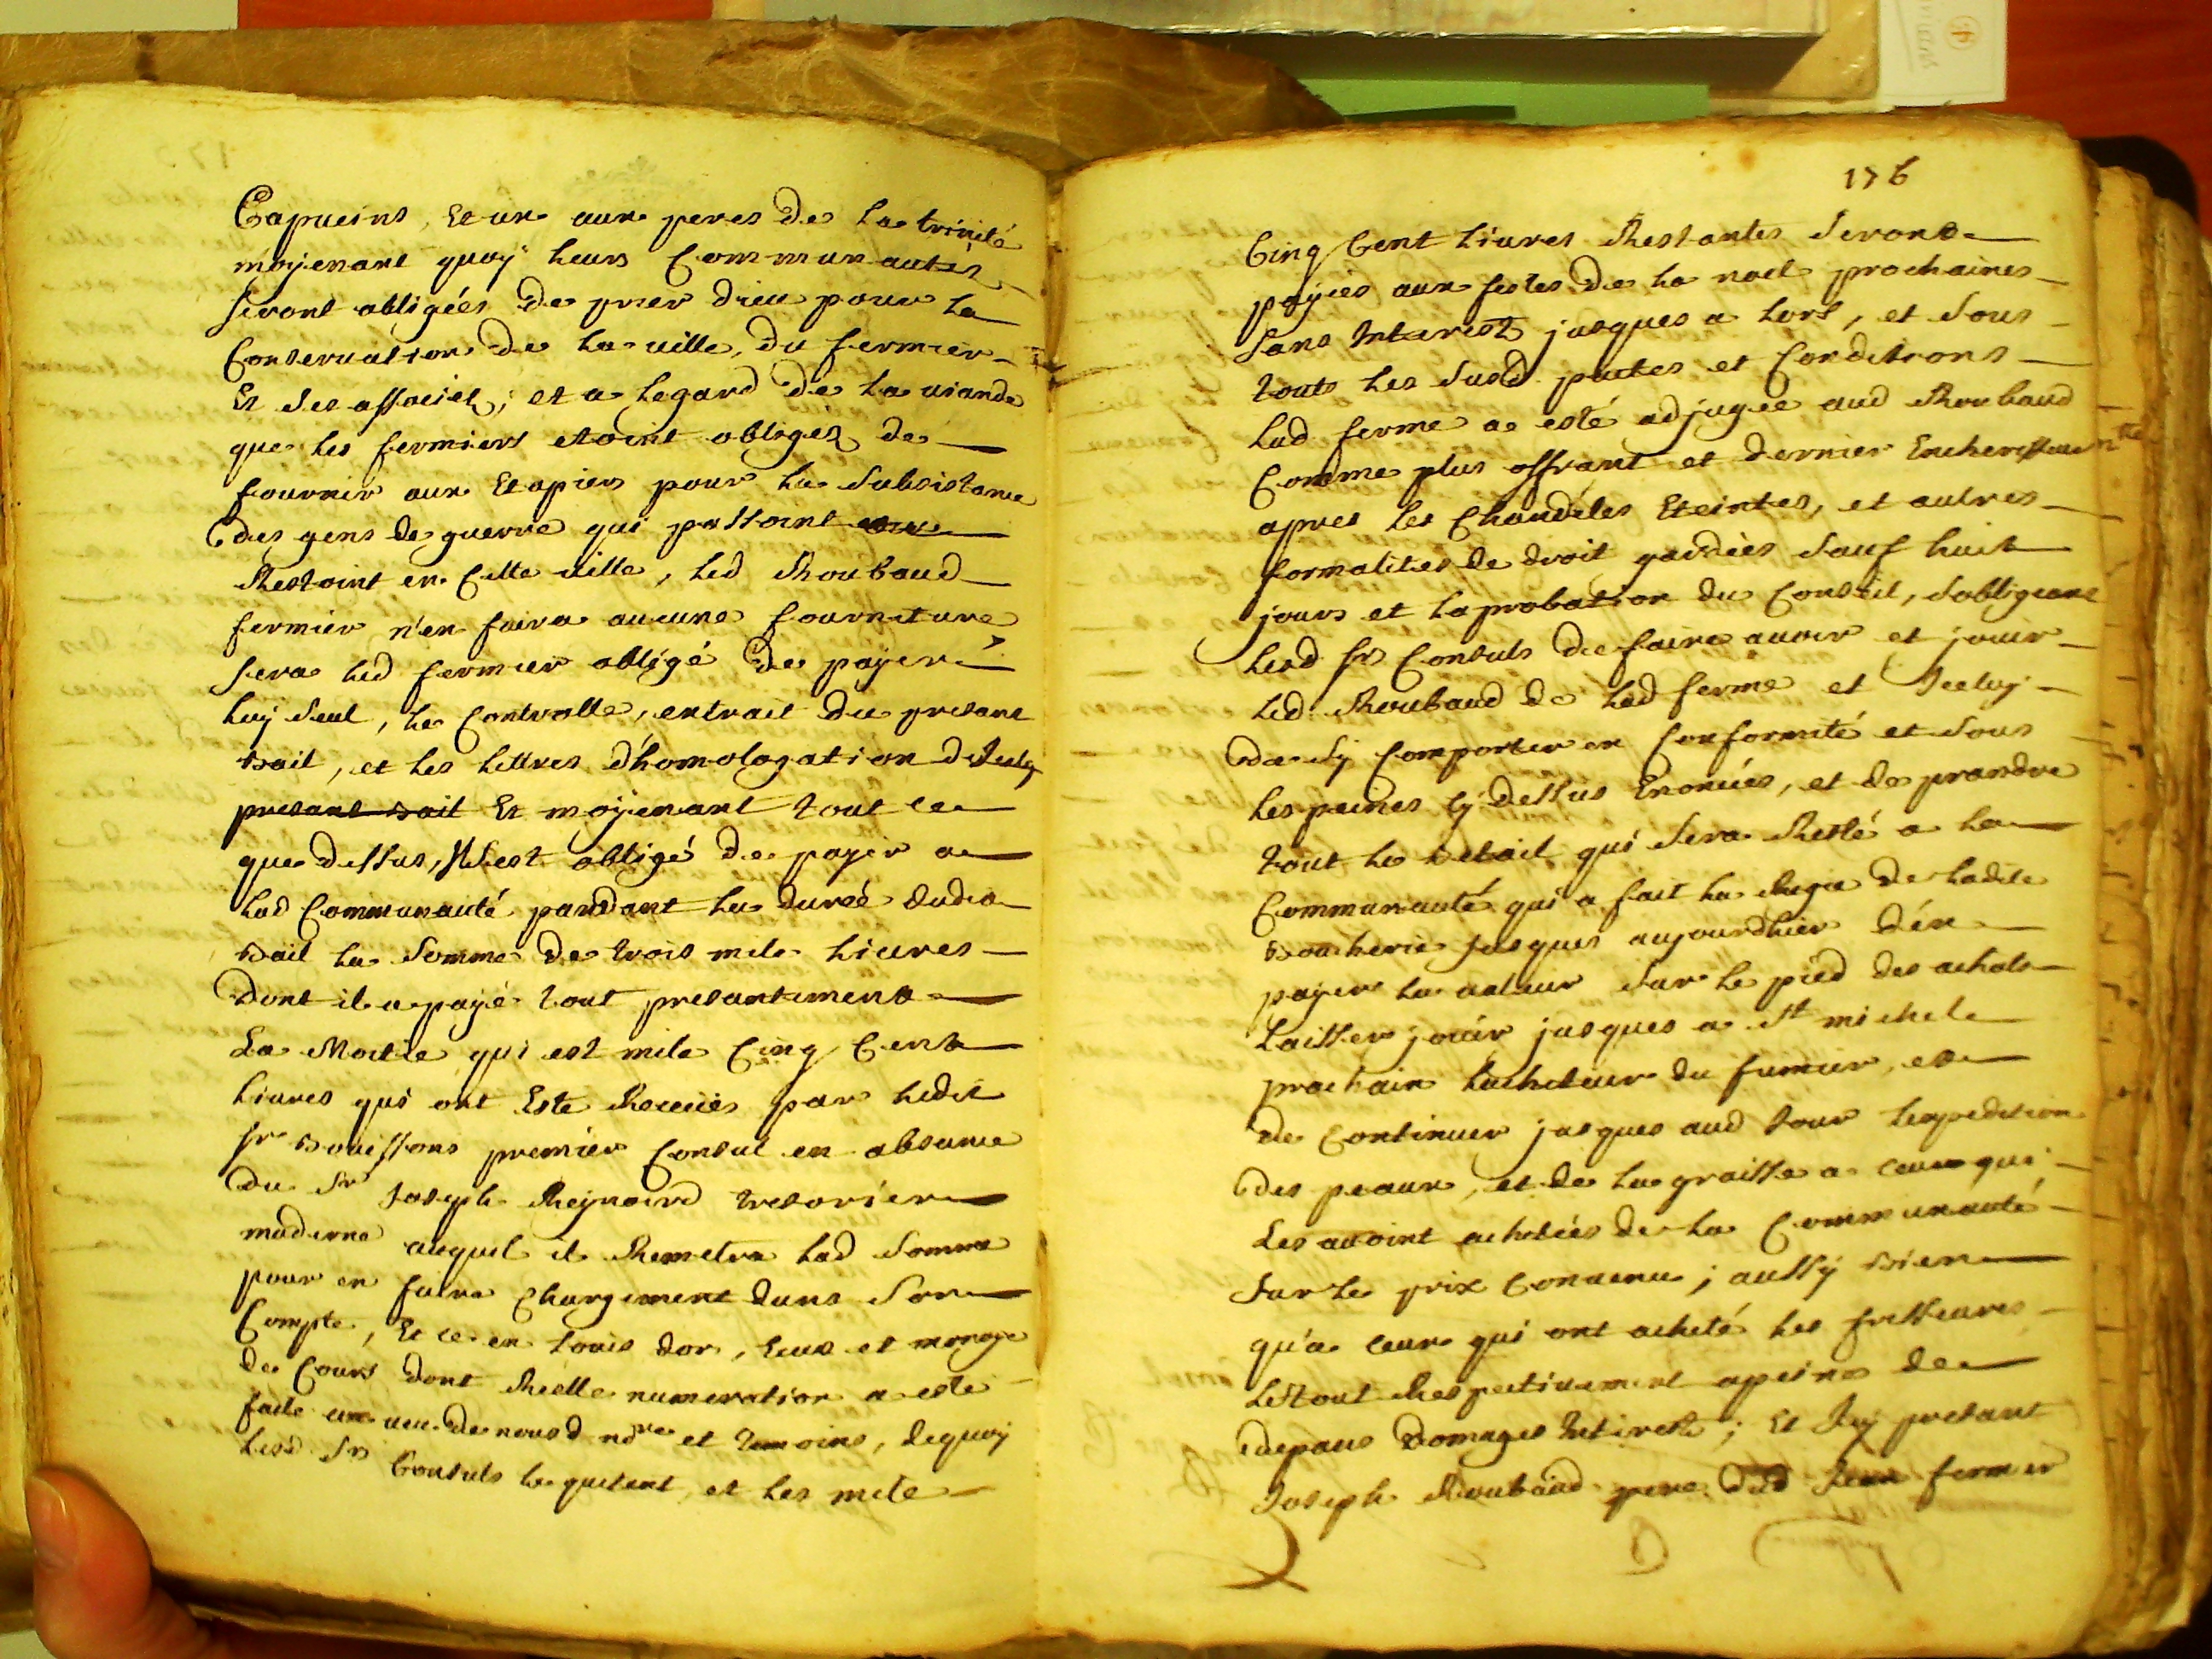 Capucins, Et un aux peres de la trinité
moyenant quoy leurs Communautés
seront obligées de prier dieu pour la
Conservation de la ville, du fermier
Et ses associes; et a legard de la viande
que les fermiers etoint obliges de
fournir aux Etapiers pour la subsistance
des gens de guerre qui passoint ou
Restoint en Cette ville, led Roubaud
fermier n'en faira aucune fourniture
sera led fermier obligé de payer
luy seul, le Controlle, extrait du presant
bail, et les lettres d'homologation
presant bail Et moyenant tout ce
que dessus, est obligé de payer a
lad Communauté pandant la durée dudit
bail la somme de trois mile livres
Dont il a payé tout presantement
La Moitie qui est mile Cinq Cent
livres qui ont Esté Receues par ledit
sr Bouissons premier Consul en absance
du Sr Joseph Reynoird tresorier
moderne auquel il Remetra lad somme
pour en faire Chargement dans son
Compte, Et ce en louis dor, Ecus et monoye
de Cours dont Réelle numeration a esté
faite au veu de nousd nore et temoins, de quoy
lesd Srs Consuls le quitent, et les mile
176
Cinq Cent livres Restantes seront
payées aux festes de la noel prochaines
sans Interest jusques a lors, et sous
touts les susd pactes et Conditions
lad ferme a esté adjugée aud Roubaud
Comme plus offrant et dernier Encherisseur
apres les Chandeles Eteintes, et autres
formalités de droit gardées sauf huit
jours et laprobation du Conseil, sobligeant
lesd srs Consuls de faire avoir et jouir
led Roubaud de lad ferme et Iceluy
de sy Comporter en Conformité et sous
les peines cy dessus Enoncées, et de prandre
tout le betail qui sera Resté a la
Communauté qui a fait la Regie de ladite
Boucherie jusques aujourdhier d'en
payer la valeur sur le pied des achats
laisser jouir jusques a St michel
prochain lacheteur du fumier, et
de Continuer jusques aud jour lexpedition
des peaux, et de la graisse a ceux qui
les avoint achetées de la Communauté
sur le prix Convenu; aussy bien
qu'a ceux qui ont acheté les
le tout Respectivement a peine de
depans Domages Interests; Et Icy presant
Joseph Roubaud pere dud fermier